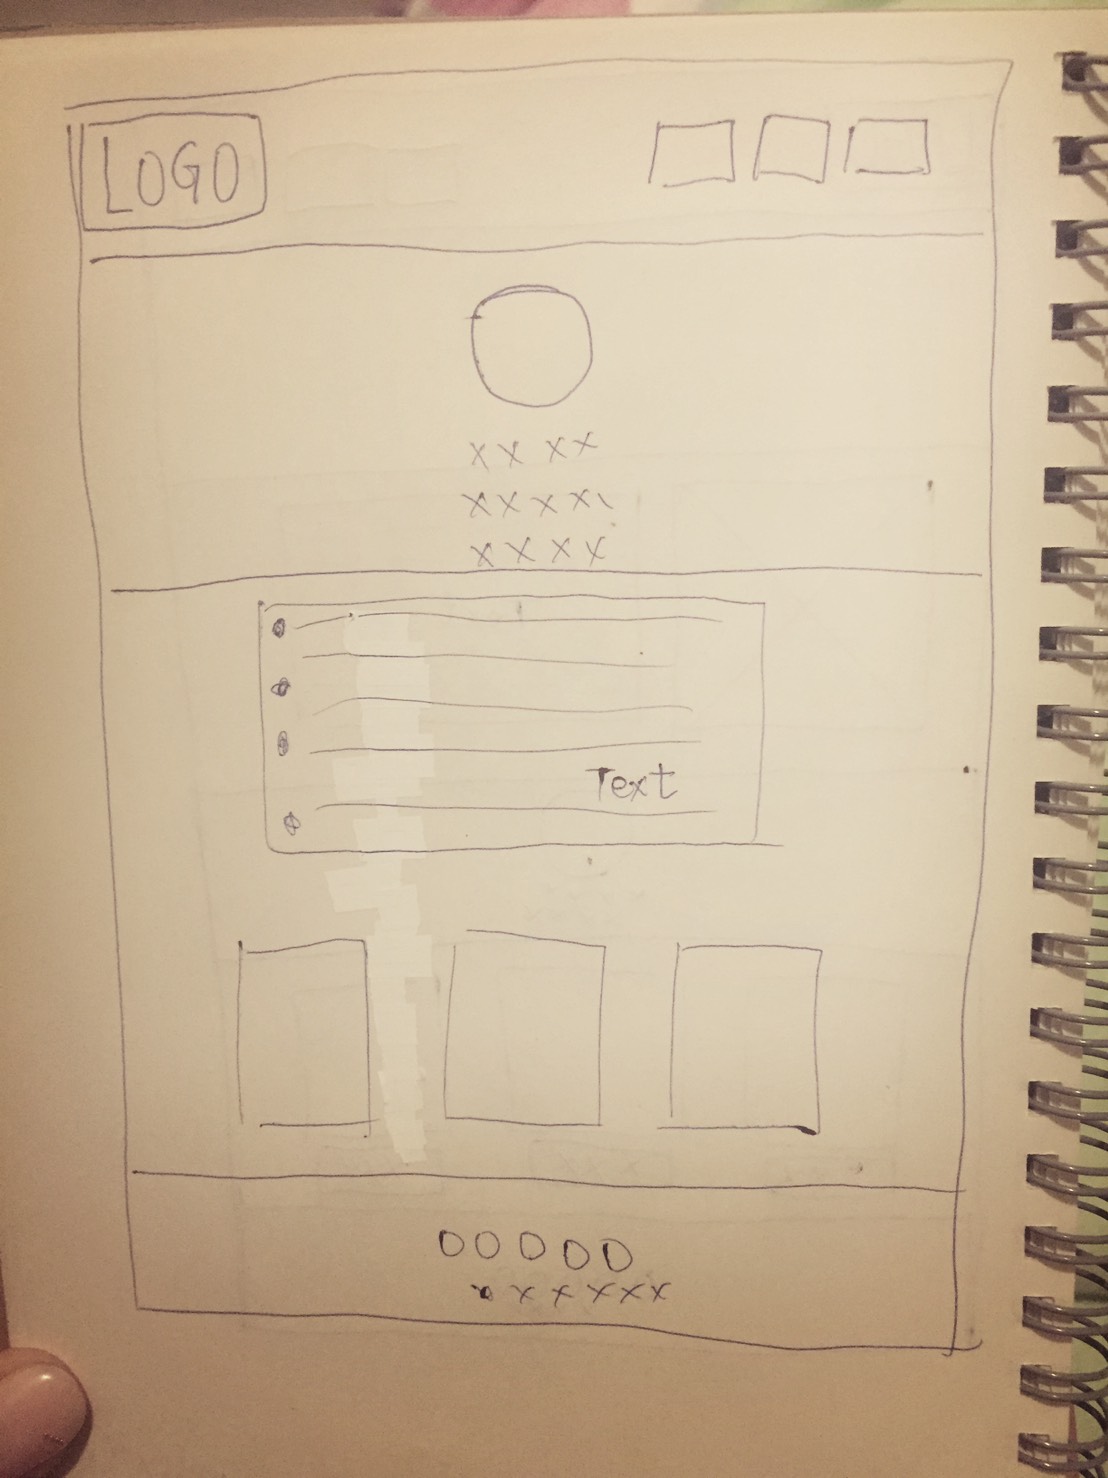 LOGO
xx xx
xxxx
xxxx
Text
OOOOO
xxxxx